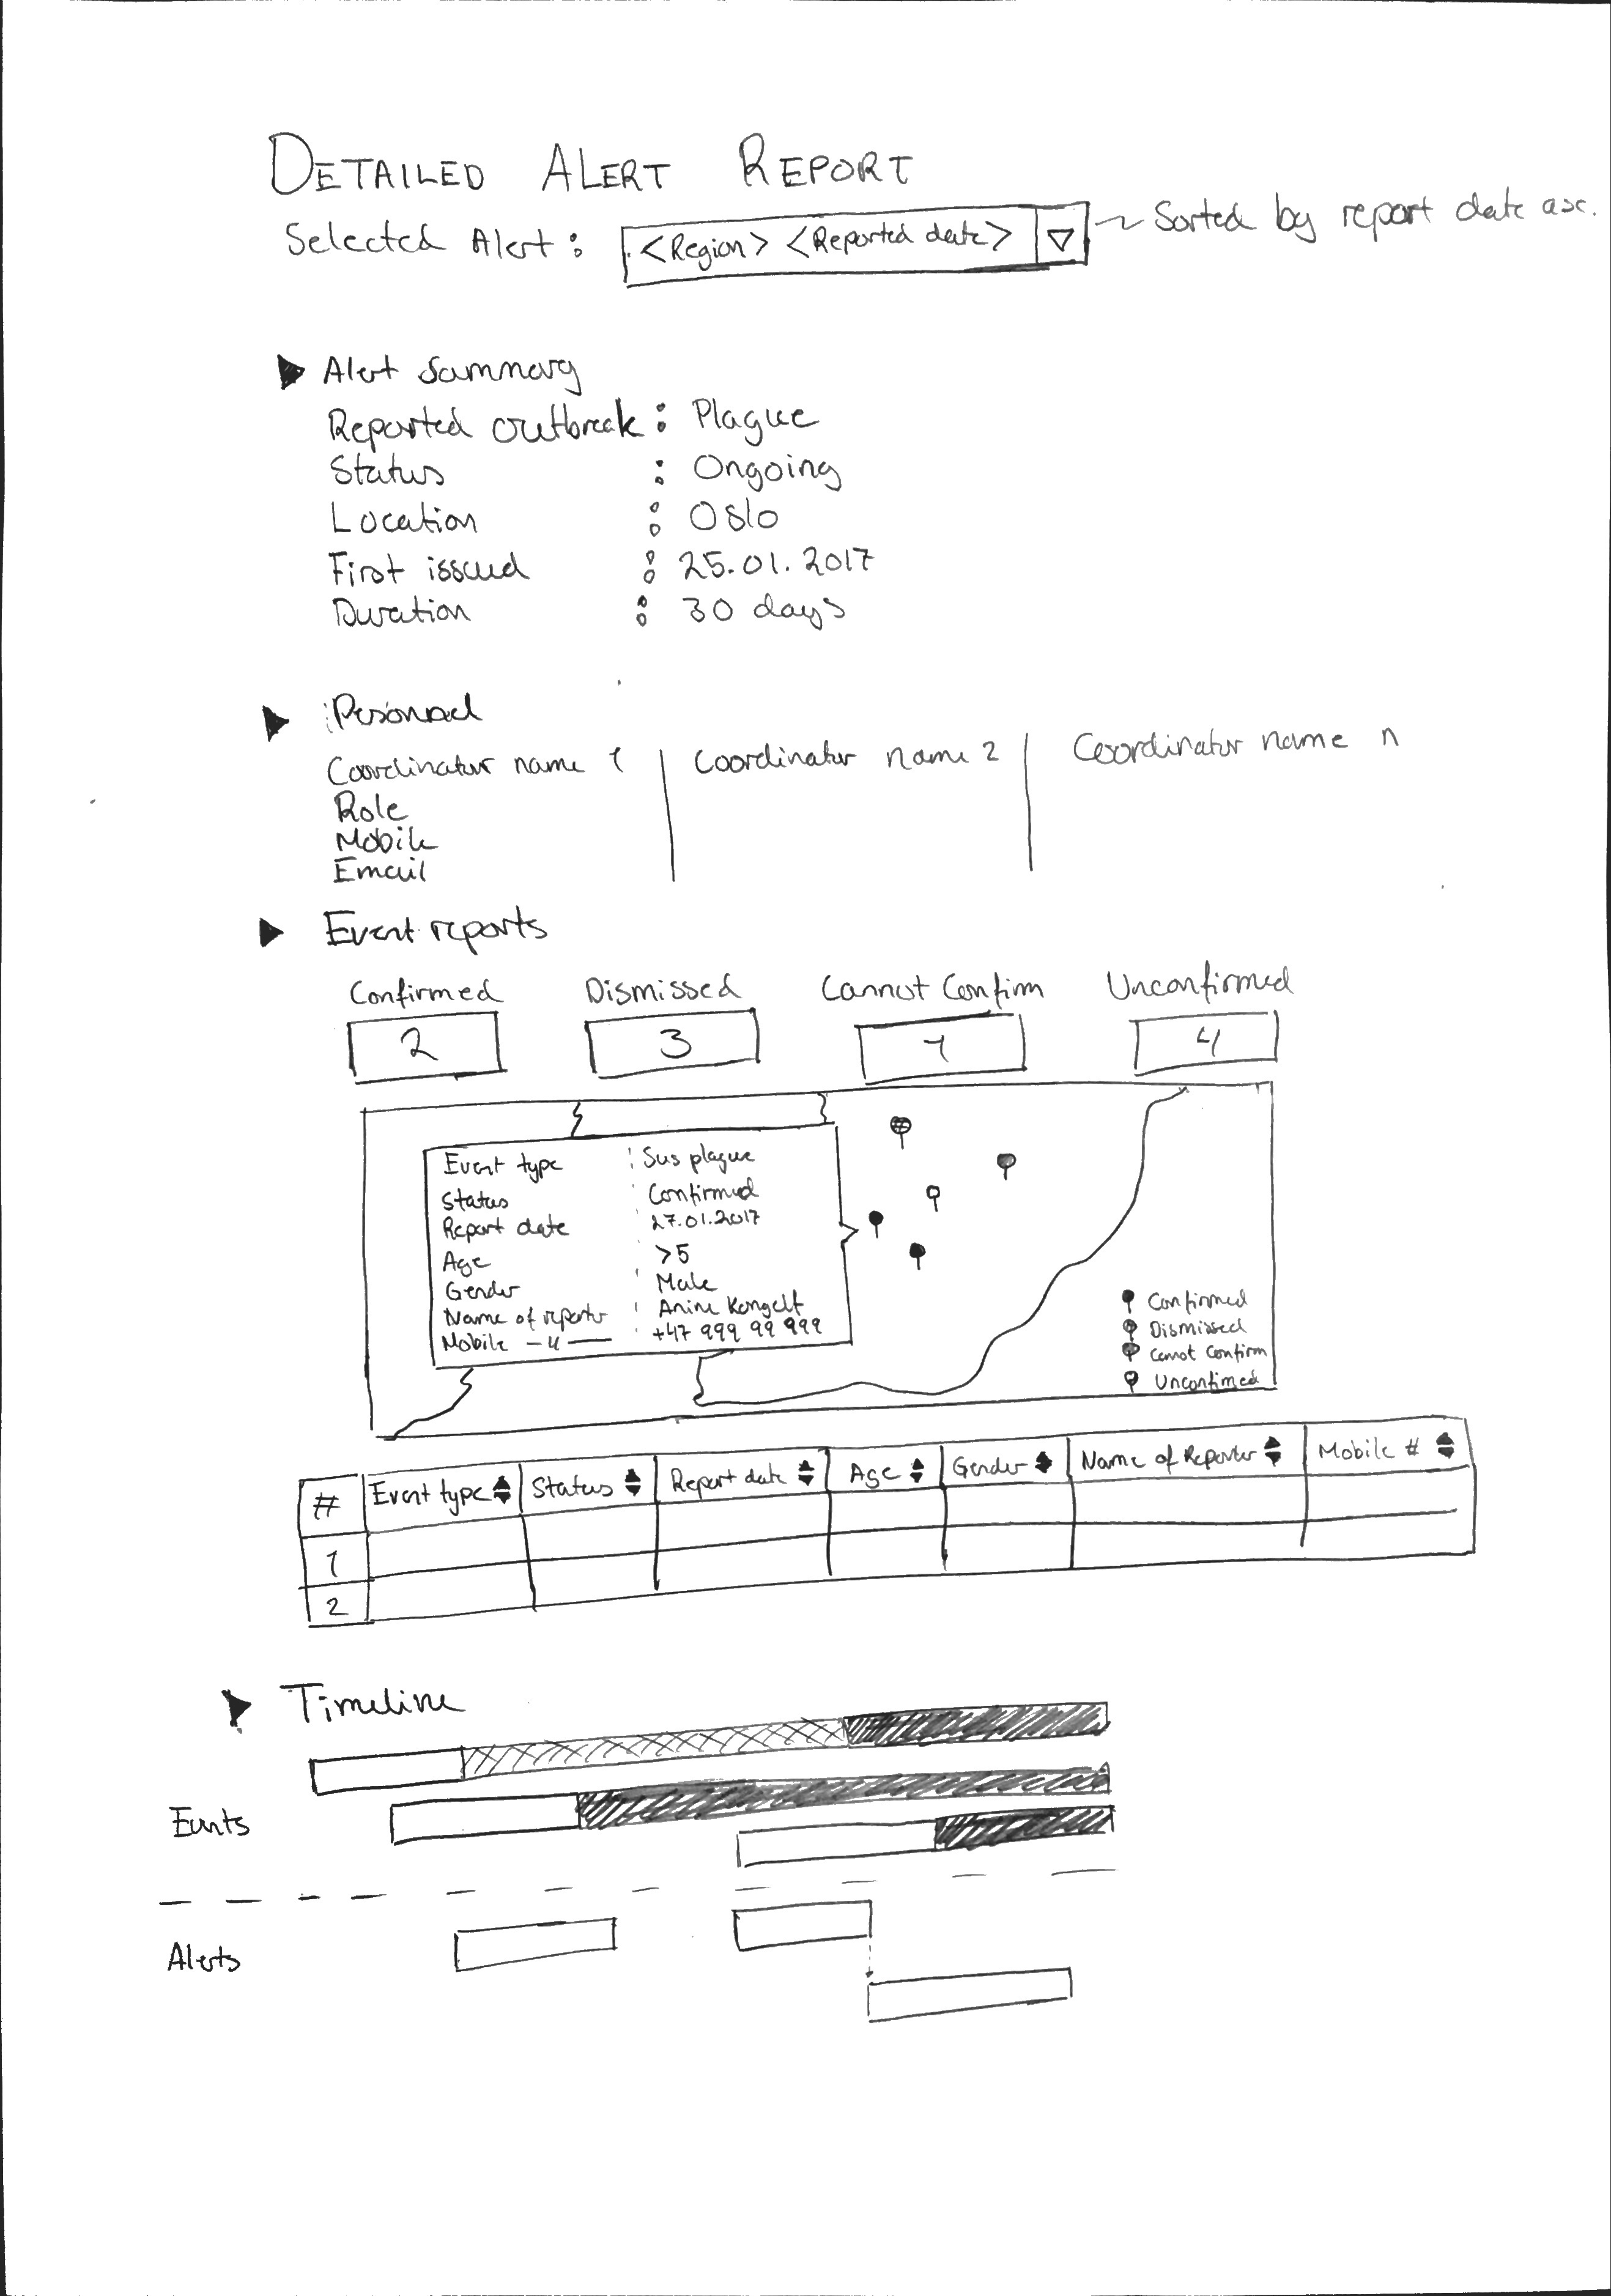 DETAILED ALERT REPORT
Selected Alert : <Region> <Reported date> ~ Sorted by report date asc.
Alert summary
Reported outbreak : Plague
Status : Ongoing
Location : Oslo
First issued : 25.01.2017
Duration : 30 days
Personnel
Coordinator name 1 Coordinator name 2 Coordinator name n
Role
Mobile
Email
Event reports
Confirmed Dismissed Cannot Confirm Unconfirmed
2 3 1 4
Event type : Sus plague
Status : Confirmed
Report date : 27.01.2017
Age : >5
Gender : Male
Name of reporter : Anine
Mobile — 11 — : +47 999 99 999
Confirmed
Dismissed
Cannot Confirm
Unconfirmed
# Event type Status Report date Age Gender Name of Reporter Mobile #
1
2
Timeline
Events
Alerts